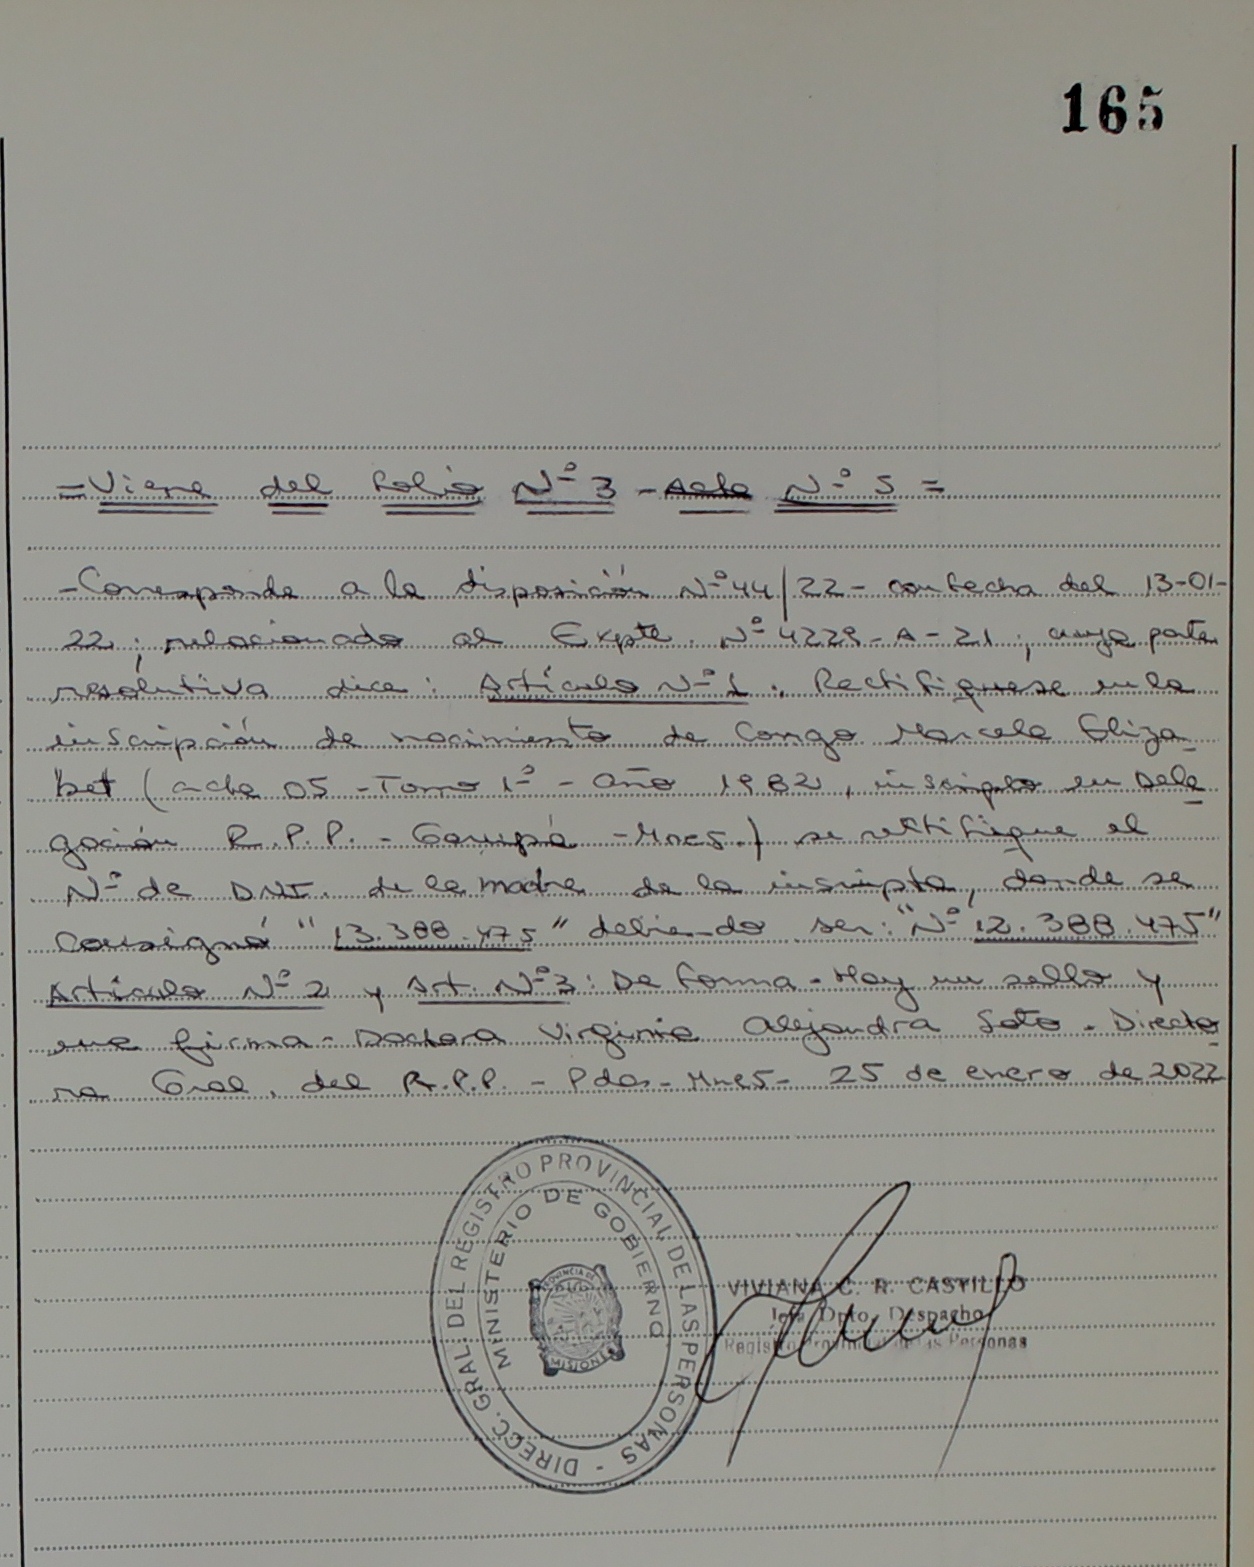 165
=Viene del folio Nº 3 - Acta Nº 5 =
-Corresponde a la disposición Nº 44/22- con fecha del 13-01-
22; relacionado al Expte. Nº 4229-A-21; cuya parte
resolutiva dice: Artículo Nº 1: Rectifiquese en la
inscripción de nacimiento de Congo Marcela Eliza-
bet (acta 05 - Tomo 1º - año 1982, inscripta en Dele
gación R.P.P. - Garupá - Mnes.) se rectifique el
Nº de DNI. de la madre de la inscripta, donde se
consignó "13.388.475" debiendo ser: "Nº 12.388.475"
Artículo Nº 2 y Art. Nº 3: De forma - Hay un sello y
una firma - Doctora Virginia Alejandra Soto - Directo
ra Gral. del R.P.P. - Pdas - Mnes - 25 de enero de 2022
DIRECC. GRAL. DEL REGISTRO PROVINCIAL DE LAS PERSONAS -
MINISTERIO DE GOBIERNO
PROVINCIA DE
MISIONES
VIVIANA C. R. CASTILLO
Jefa Dpto. Despacho
Registro Provincial de las Personas